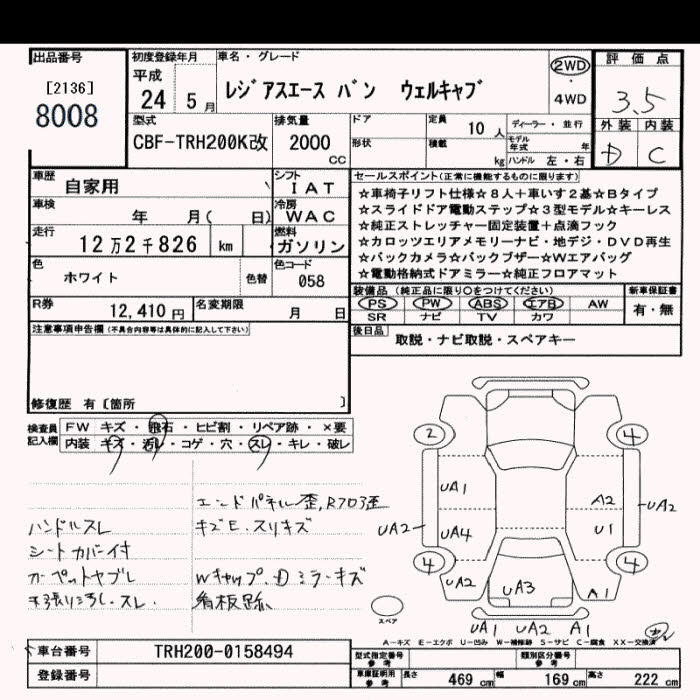 出品番号
[2136]
8008
初度登録年月
平成
24 5 月
車名・グレード
レジアスエース バン ウェルキャブ
2WD
4WD
評価点
3.5
外装 内装
D C
型式
CBF-TRH200K改
排気量
2000
CC
ドア
形状
定員 10 人
積載 kg
ディーラー・並行
モデル年式 年
ハンドル 左・右
車歴
自家用
シフト
IAT
車検 年 月( 日)
冷房
WAC
走行
12万2千826 km
燃料
ガソリン
色
ホワイト
色替
色コード
058
R券
12,410 円
名変期限
月 日
注意事項申告欄(不具合内容等は具体的に記入して下さい)
修復歴 有〔箇所 〕
セールスポイント(正常に機能するものに限ります)
☆車椅子リフト仕様☆8人+車いす2基☆Bタイプ
☆スライドドア電動ステップ☆3型モデル☆キーレス
☆純正ストレッチャー固定装置+点滴フック
☆カロッツエリアメモリーナビ・地デジ・DVD再生
☆バックカメラ☆バックブザー☆Wエアバグ
☆電動格納式ドアミラー☆純正フロアマット
装備品(純正品に限り○をつけてください)
新車保証書
PS PW ABS エアB AW
有・無
SR ナビ TV カワ
後日品
取説・ナビ取説・スペアキー
検査員記入欄
FW キズ・飛石・ヒビ割・リペア跡・×要
内装 キズ・汚レ・コゲ・穴・スレ・キレ・破レ
エンドパネル歪,R70歪
ハンドルスレ
キズE.スリキズ
シートカバー付
カーペットヤブレ
Wキャップ.Dミラーキズ
看板跡
2
4
UA1
A2
UA2
UA2
UA4
U1
4
4
UA2
UA3
A1
スペア
UA1 UA2 A1
A-キズ E-エクボ U-凹み W-補修跡 S-サビ C-腐食 XX-交換済
車台番号
TRH200-0158494
型式指定番号
参考
類別区分番号
参考
登録番号
車庫証明用
参考
長さ 469 cm
幅 169 cm
高さ 222 cm